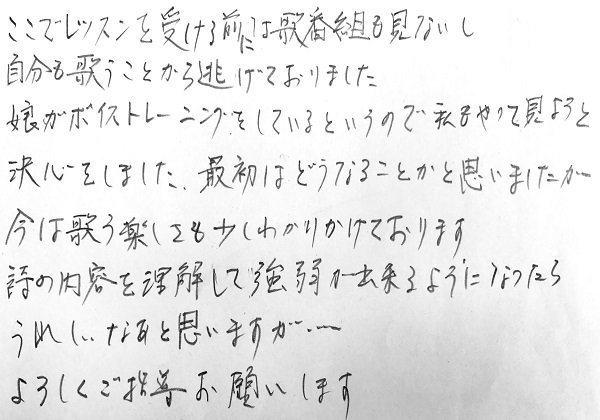 ここでレッスンを受ける前には歌番組も見ないし
自分も歌うことから逃げておりました
娘がボイストレーニングをしているというので私もやって見ようと
決心をしました、最初はどうなることかと思いましたが
今は歌う楽しさも少しわかりかけております
詩の内容を理解して強弱が出来るようになったら
うれしいなあと思いますが…
よろしくご指导お願いします